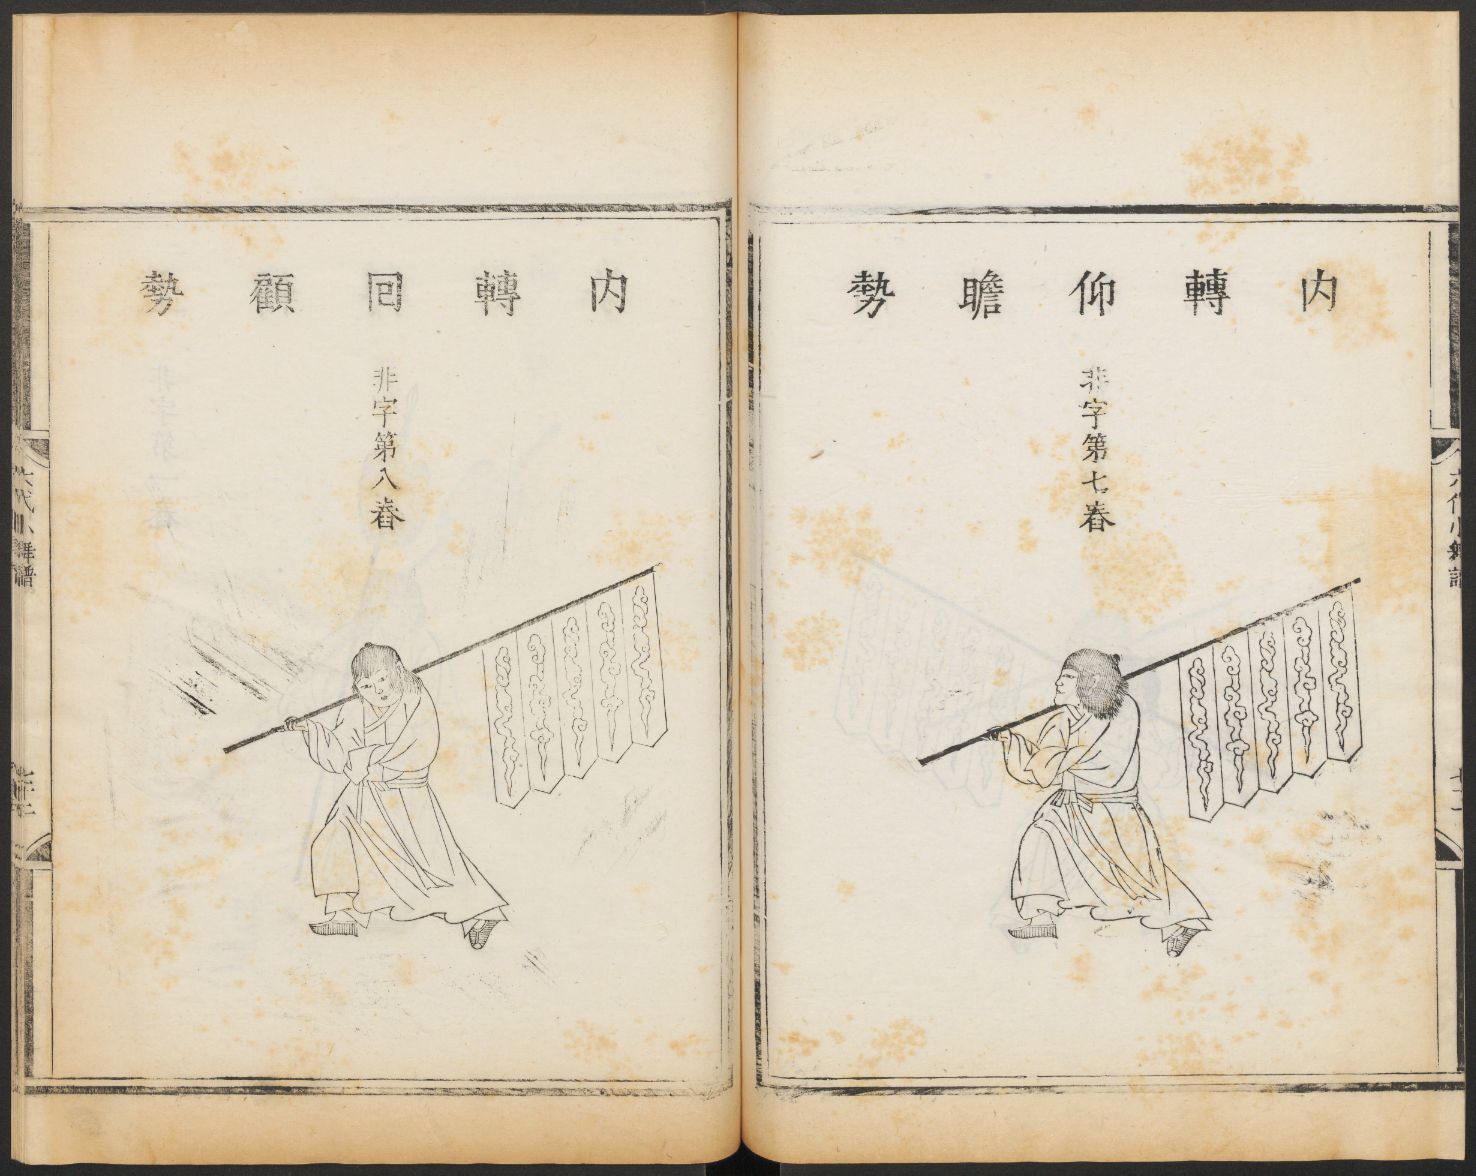 内轉仰瞻勢
非字第七舂
六代小舞譜
内轉回顧勢
非字第八舂
六代小舞譜